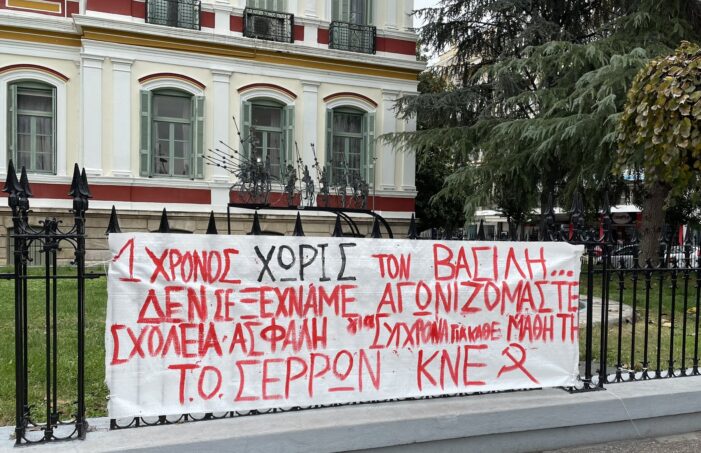 1 ΧΡΟΝΟΣ ΧΩΡΙΣ ΤΟΝ ΒΑΣΙΛΗ...
ΔΕΝ ΣΕ ΞΕΧΝΑΜΕ ΑΓΩΝΙΖΟΜΑΣΤΕ
ΣΧΟΛΕΙΑ ΑΣΦΑΛΗ για ΣΥΓΧΡΟΝΑ ΓΙΑ ΚΑΘΕ ΜΑΘΗΤΗ
Τ.Ο. ΣΕΡΡΩΝ ΚΝΕ